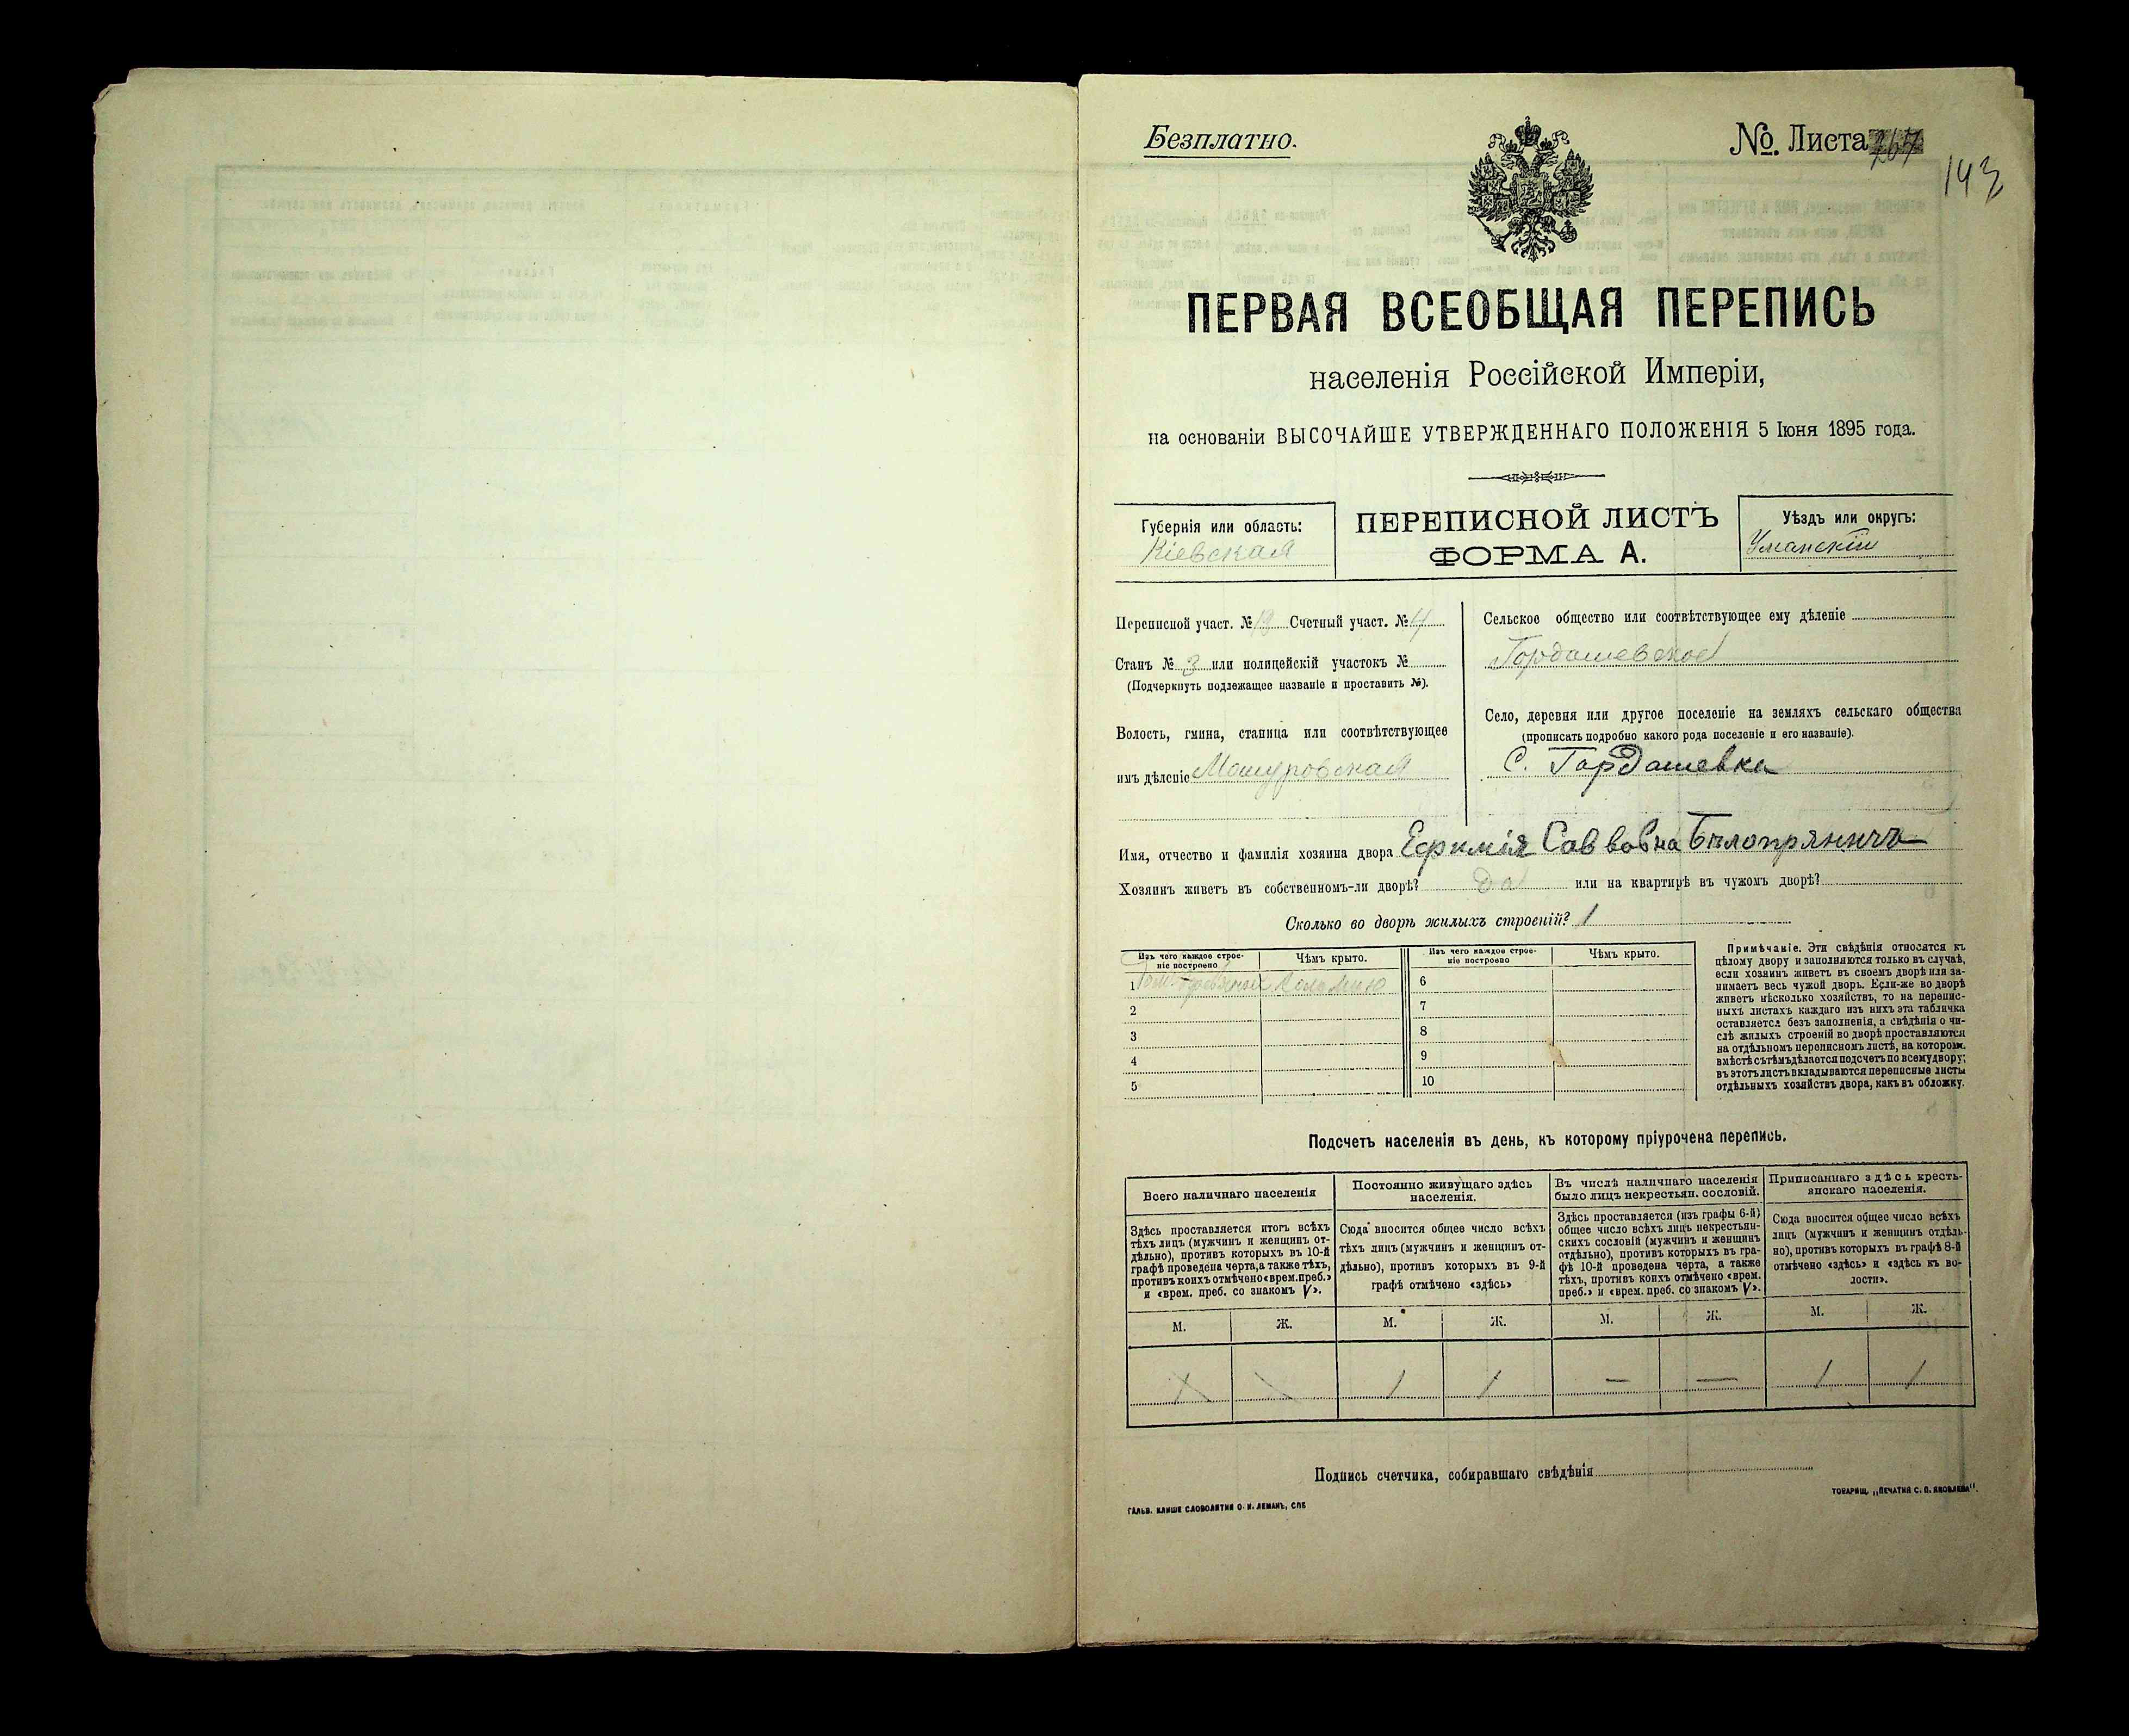 Безплатно.
№. Листа 267
143
ПЕРВАЯ ВСЕОБЩАЯ ПЕРЕПИСЬ
населенія Россійской Имперіи,
на основаніи ВЫСОЧАЙШЕ УТВЕРЖДЕННАГО ПОЛОЖЕНІЯ 5 Іюня 1895 года.
Губернія или область:
Кіевская
ПЕРЕПИСНОЙ ЛИСТЪ
ФОРМА А.
Уѣздъ или округъ:
Уманскій
Переписной участ. № 13 Счетный участ. № 4
Станъ № 3 или полицейскій участокъ №
(Подчеркнуть подлежащее названіе и проставить №).
Волость, гмина, станица или соотвѣтствующее
имъ дѣленіе Машуровская
Сельское общество или соотвѣтствующее ему дѣленіе
Гордашевское
Село, деревня или другое поселеніе на земляхъ сельскаго общества
(прописать подробно какого рода поселеніе и его названіе).
С. Гордашевка
Имя, отчество и фамилія хозяина двора Ефимія Саввовна Бѣлопряничъ
Хозяинъ живетъ въ собственномъ-ли дворѣ? да или на квартирѣ въ чужомъ дворѣ?
Сколько во дворѣ жилыхъ строеній? 1
Изъ чего каждое строе-
ніе построено
Чѣмъ крыто.
Изъ чего каждое строе-
ніе построено
Чѣмъ крыто.
1 Соломою
2
3
4
5
6
7
8
9
10
Примѣчаніе. Эти свѣдѣнія относятся къ
цѣлому двору и заполняются только въ случаѣ,
если хозяинъ живетъ въ своемъ дворѣ или за-
нимаетъ весь чужой дворъ. Если-же во дворѣ
живетъ нѣсколько хозяйствъ, то на перепис-
ныхъ листахъ каждаго изъ нихъ эта табличка
оставляется безъ заполненія, а свѣдѣнія о чи-
слѣ жилыхъ строеній во дворѣ проставляются
на отдѣльномъ переписномъ листѣ, на которомъ
вмѣстѣ съ тѣмъ дѣлается подсчетъ по всему двору;
въ этотъ листъ вкладываются переписные листы
отдѣльныхъ хозяйствъ двора, какъ въ обложку.
Подсчетъ населенія въ день, къ которому пріурочена перепись.
Всего наличнаго населенія
Здѣсь проставляется итогъ всѣхъ
тѣхъ лицъ (мужчинъ и женщинъ от-
дѣльно), противъ которыхъ въ 10-й
графѣ проведена черта, а также тѣхъ,
противъ коихъ отмѣчено «врем. преб.»
и «врем. преб. со знакомъ V».
Постоянно живущаго здѣсь
населенія.
Сюда вносится общее число всѣхъ
тѣхъ лицъ (мужчинъ и женщинъ от-
дѣльно), противъ которыхъ въ 9-й
графѣ отмѣчено «здѣсь»
Въ числѣ наличнаго населенія
было лицъ некрестьян. сословій.
Здѣсь проставляется (изъ графы 6-й)
общее число всѣхъ лицъ некрестьян-
скихъ сословій (мужчинъ и женщинъ
отдѣльно), противъ которыхъ въ гра-
фѣ 10-й проведена черта, а также
тѣхъ, противъ коихъ отмѣчено «врем.
преб.» и «врем. преб. со знакомъ V».
Приписаннаго здѣсь кресть-
янскаго населенія.
Сюда вносится общее число всѣхъ
лицъ (мужчинъ и женщинъ отдѣль-
но), противъ которыхъ въ графѣ 8-й
отмѣчено «здѣсь» и «здѣсь къ во-
лости».
М. Ж. М. Ж. М. Ж. М. Ж.
1 1 — — 1 1
Подпись счетчика, собиравшаго свѣдѣнія
ГАЛЬВ. КЛИШЕ СЛОВОЛИТНИ О. И. ЛЕМАНЪ, СПБ
ТОВАРИЩ. „ПЕЧАТНЯ С. П. ЯКОВЛЕВА“.